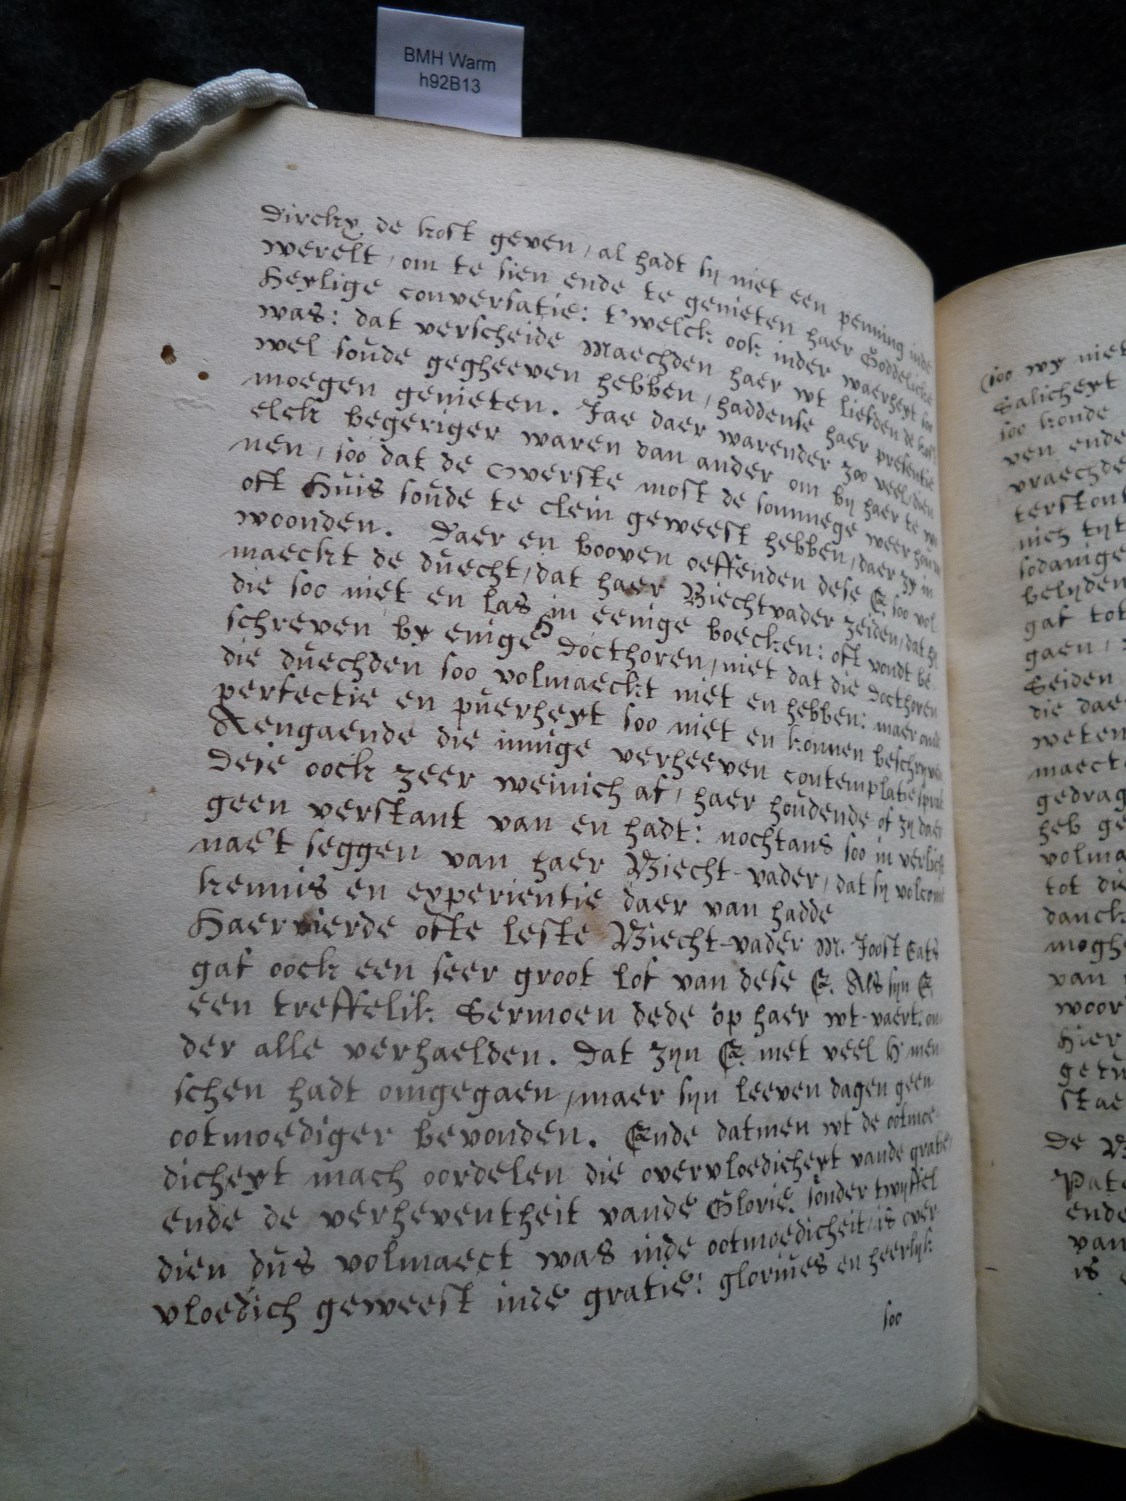 BMH Warm
h92B13
Dirckx de kost geven, al hadt sy niet een penning inde
werelt, om te sien ende te genieten haer Goddelicke
Heylige conversatie: t'welck ook inder waerheyt soo
was: dat verscheide Maechden haer wt liefden de kost
wel soude gegheeven hebben, haddense haer presentie
moegen genieten. Jae daer warender zoo veel, dien
elck begeriger waren dan ander om by haer te woo
nen, soo dat de Overste most de sommege weerhouden
oft Huis soude te clein geweest hebben, daer zy in
woonden. Daer en booven oeffenden dese E. soo vol
maeckt de duecht, dat haer Biechtvader zeiden, dat hy
die soo niet en las in eenige boecken: oft vondt be
schreven by enige Docthoren, niet dat die Docthoren
die duechden soo volmaeckt niet en hebben: maer om de
perfectie en puerheyt soo niet en konnen beschryven
Aengaende die innige verheeven contemplatie sprak
Dese oock zeer weinich af, haer houdende of zy daer
geen verstant van en hadt: nochtans soo in verlicht
nae't seggen van haer Biecht-vader, dat sy volcomen
kennis en experientie daer van hadde
Haer vierde ofte leste Biecht-vader M. Joost Cats
gaf oock een seer groot lof van dese E. Als syn E.
een treffelik Sermoen dede op haer wt-vaert: on
der alle verhaelden. Dat zyn E. met veel H men
schen hadt omgegaen, maer syn leeven dagen geen
ootmoediger bevonden. Ende datmen wt de ootmoe
dicheyt mach oordelen die overvloedicheyt vande gratie
ende de verheventheit vande Glorie. sonder twyffel
dien dus volmaect was inde ootmoedicheit, is over
vloedich geweest inde gratie: glorieus en heerlyk
soo
(soo wy niet
Salicheyt
soo konde
ven ende
vraechde
terstont
sodanige
belyden
gaf tot
gaen,
Seiden
die daer
weten
maect
gedrag
heb ge
volma
tot die
danck
mogh
van
woor
Hier
getu
stae
De
Pate
ende
van
is